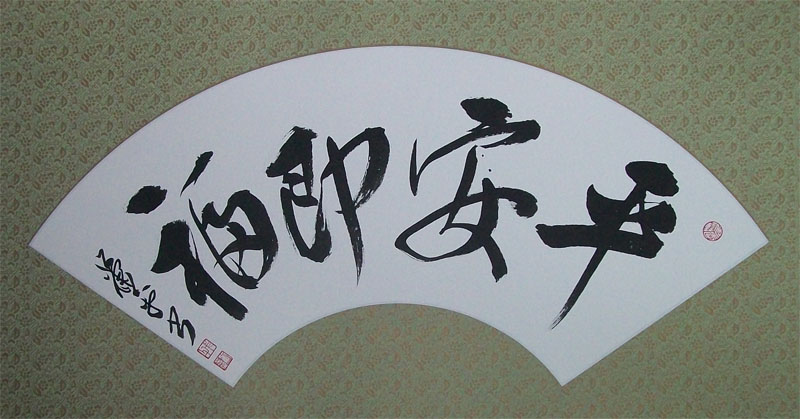 平安即福